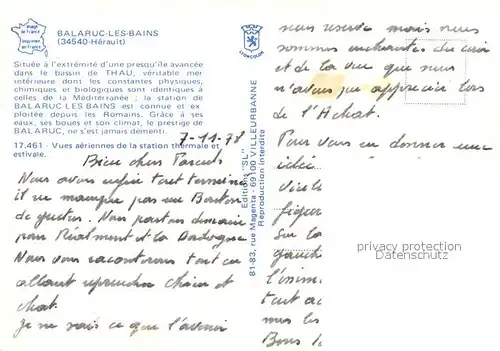 Image de France
Imprimé en France
BALARUC-LES-BAINS
(34540-Hérault)
Située à l'extrémité d'une presqu'île avancée
dans le bassin de THAU, véritable mer
intérieure dont les constantes physiques,
chimiques et biologiques sont identiques à
celles de la Méditerranée ; la station de
BALARUC LES BAINS est connue et ex-
ploitée depuis les Romains. Grâce à ses
eaux, ses boues et son climat, le prestige de
BALARUC, ne s'est jamais démenti.
7-11-78
17.461 - Vues aériennes de la station thermale et
estivale.
Bien chers Parents
Nous avons enfin tout terminé
il ne manque pas un Bouton
de guetres. Nous partons demain
pour Réalmont et la Dordogne
Nous vous raconterons tout ca
allant reprendre chien et
chat.
Je ne sais ce que l'avenir
LYONCOLOR
Editions "SL"
81-83, rue Magenta - 69100 VILLEURBANNE
Reproduction interdite
nous reserve mais nous
sommes enchantés du coin
et de la vue que nous
n'avons pu apprécier lors
de l'Achat.
Pour vous en donner une
idée
sur la
gauche
tout au
privacy protection
Datenschutz